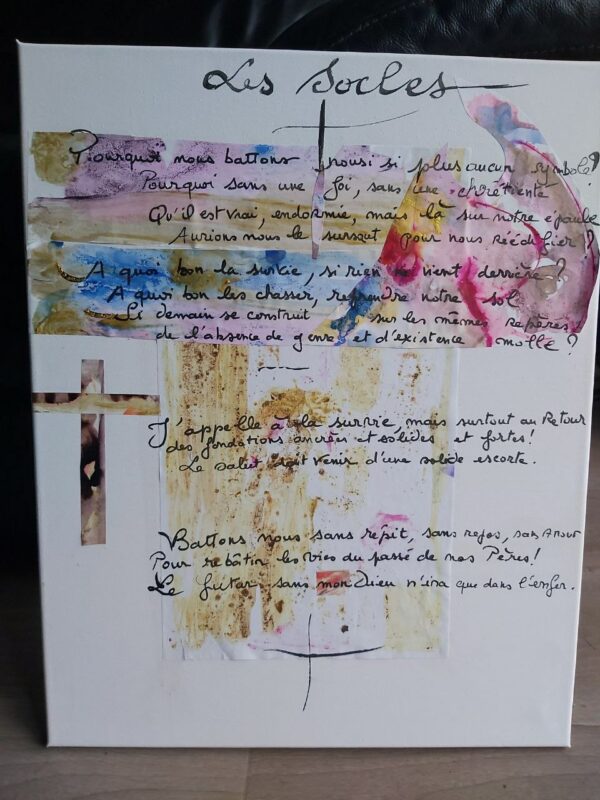 Les Socles
Pourquoi nous battons nous si plus aucun symbole?
Pourquoi sans une foi, sans une chrétienté
Qu'il est vrai, endormie, mais là sur notre épaule
Aurions nous le sursaut pour nous réédifier?
A quoi bon la survie, si rien ne vient derrière?
A quoi bon les chasser, reprendre notre sol
Si demain se construit sur les mêmes repères
de l'absence de genre et d'existence molle?
J'appelle à la survie, mais surtout au Retour
des fondations ancrées et solides et fortes!
Le salut doit venir d'une solide escorte.
Battons nous sans répit, sans repos, sans
Pour rebâtir les vies du passé de nos Pères!
Le futur sans mon Dieu n'ira que dans l'enfer.